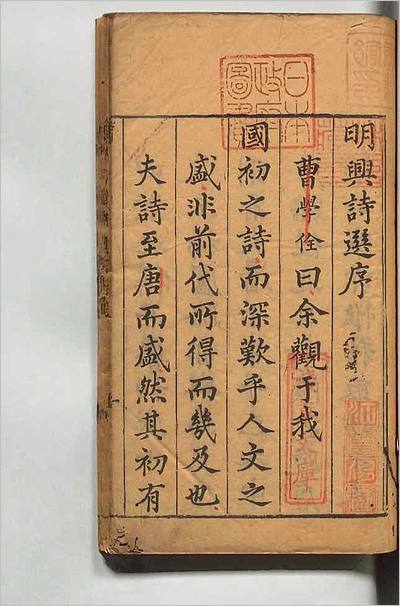 明興詩選序
曹學佺曰余觀于我
國初之詩而深歎乎人文之
盛非前代所得而幾及也
夫詩至唐而盛然其初有
日本
政府
圖書